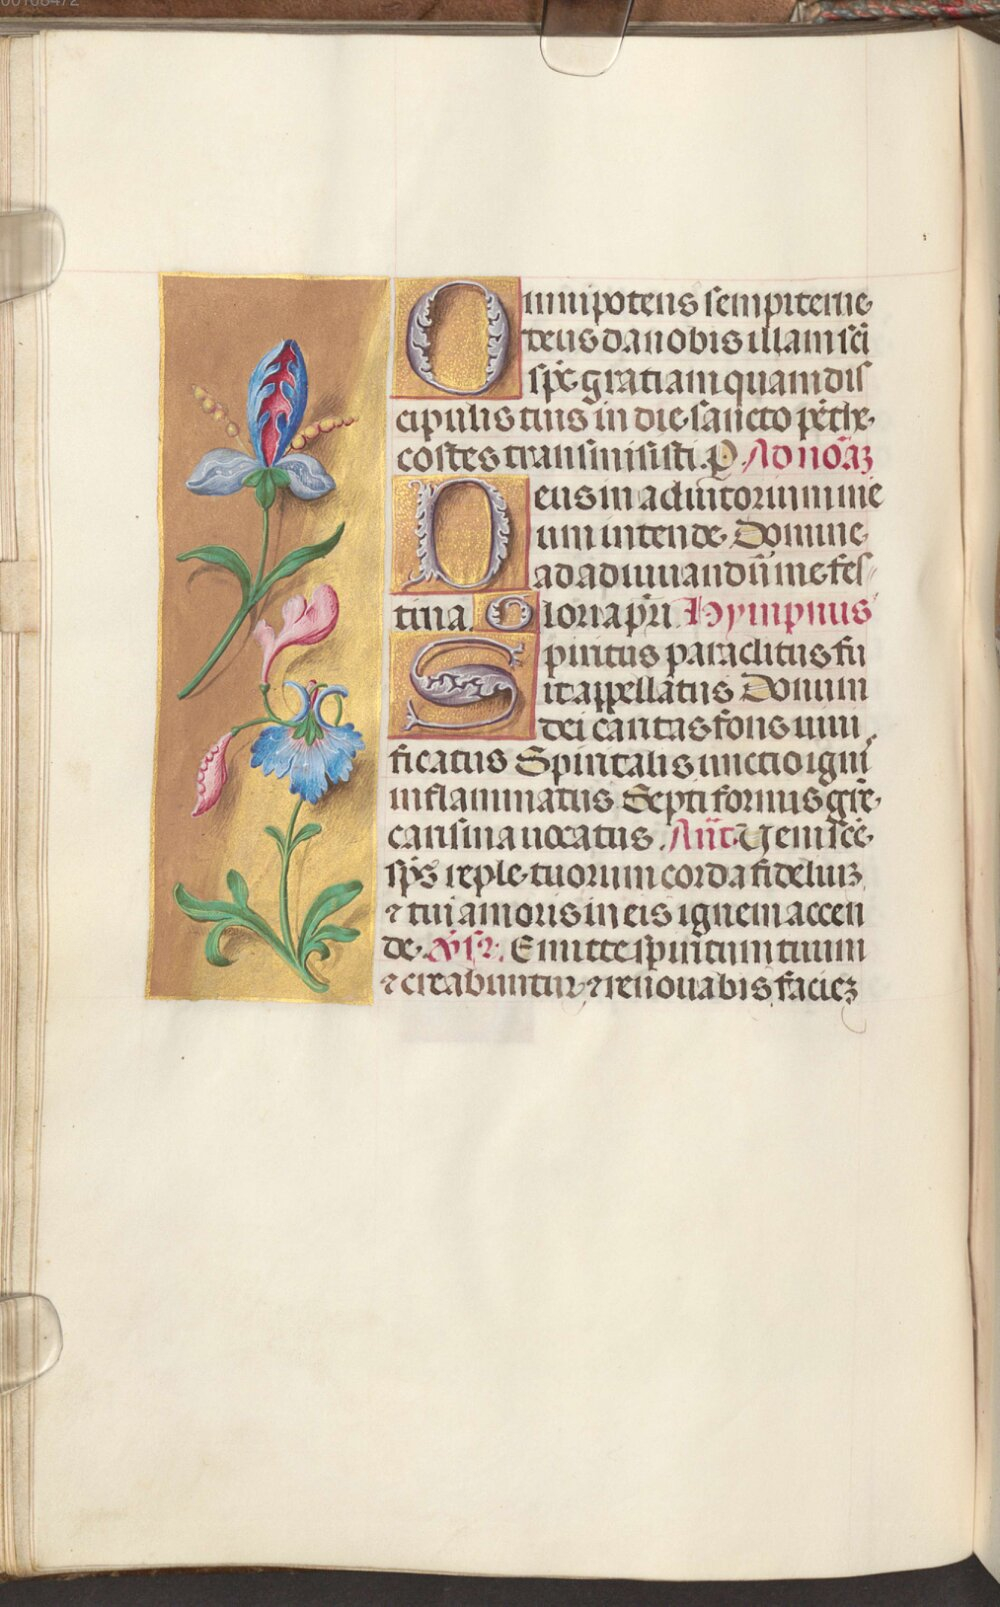 Omnipotens sempiterne
deus da nobis illam sc̃i
sp̃c gratiam quam dis
cipulis tuis in die sancto pẽthe
costes transmisisti. P. Ad nõaꝫ
Deus in adiutorium me
um intende Domine
ad adiuuandũ me fes
tina. Gloria p̃ri Hympnus
Spiritus paraclitus fu
it appellatus Donum
dei caritas fõns uiui
ficatus Spiritalis unctio igni
inflammatus Septiformis gr̃e
carisma uocatus. Añt Veni sc̃e
sp̃s reple tuorum corda fideliuꝫ
⁊ tui amoris in eis ignem accen
de. v̾s Emitte spiritum tuum
⁊ creabuntur ⁊ renouabis facieꝫ